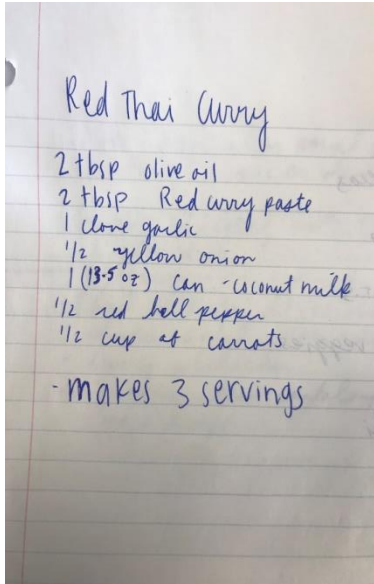 Red Thai Curry
2 tbsp olive oil
2 tbsp Red curry paste
1 clove garlic
1/2 yellow onion
1 (13.5 oz) can - coconut milk
1/2 red bell pepper
1/2 cup of carrots
- makes 3 servings